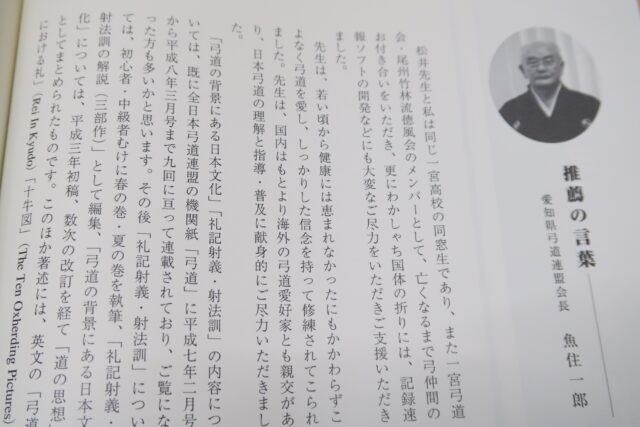 推薦の言葉
愛知県弓道連盟会長 魚住一郎
松井先生と私は同じ一宮高校の同窓生であり、また一宮弓道
会・尾州竹林流徳風会のメンバーとして、亡くなるまで弓仲間の
お付き合いをいただき、更にわかしゃち国体の折りには、記録速
報ソフトの開発などにも大変なご尽力をいただきご支援いただき
ました。
先生は、若い頃から健康には恵まれなかったにもかかわらずこ
よなく弓道を愛し、しっかりした信念を持って修練されてこられ
ました。先生は、国内はもとより海外の弓道愛好家とも親交があ
り、日本弓道の理解と指導・普及に献身的にご尽力いただきまし
た。
「弓道の背景にある日本文化」「礼記射義・射法訓」の内容につ
いては、既に全日本弓道連盟の機関紙「弓道」に平成七年二月号
から平成八年三月号まで九回に亘って連載されており、ご覧にな
った方も多いかと思います。その後「礼記射義・射法訓」につい
ては、初心者・中級者むけに春の巻・夏の巻を執筆、「礼記射義・
射法訓の解説(三部作)」として編集、「弓道の背景にある日本文
化」については、平成三年初稿、数次の改訂を経て「道の思想」
としてまとめられたものです。このほか著述には、英文の「弓道
における礼」(Rei In Kyudo)「十牛図」(The Ten Oxherding Pictures)